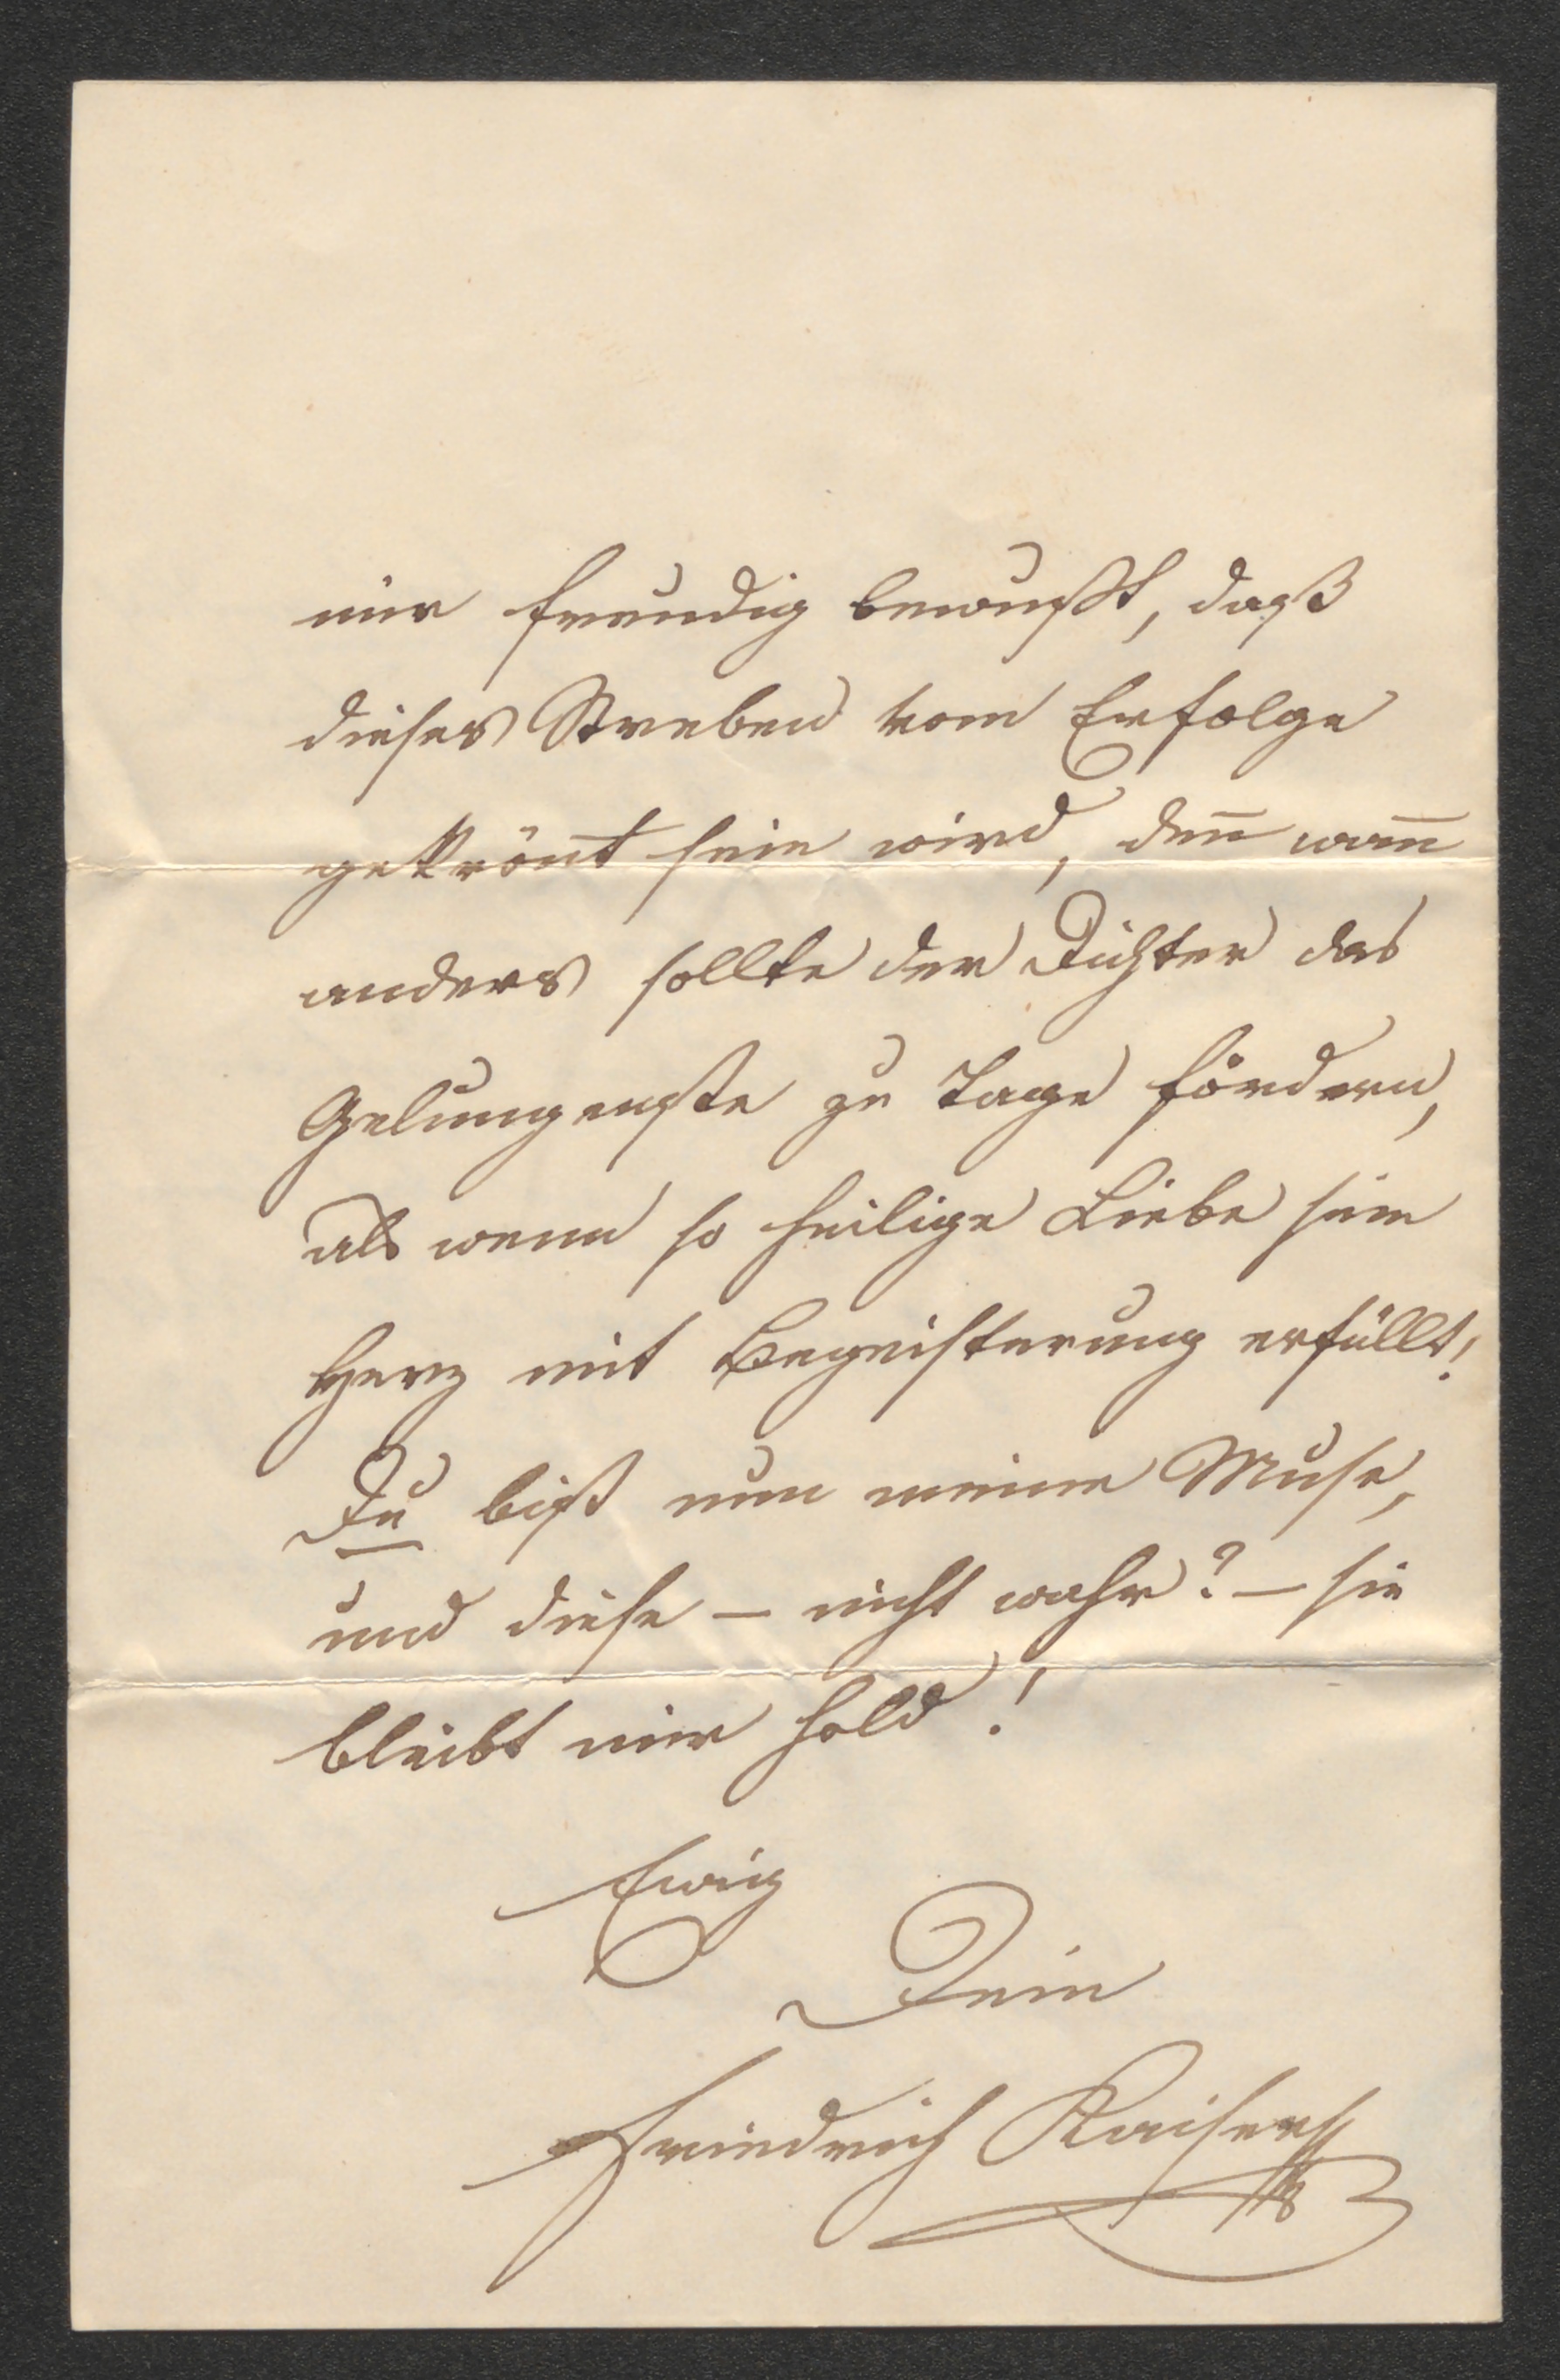 mir freudig bewußt, daß
dieses Streben vom Erfolge
gekrönt sein wird, den̄ wan̄
anders sollte der Dichter das
Gelungenste zu Tage fördern,
als wenn so heilige Liebe sein
Herz mit Begeisterung erfüllt!
Du bist nun meine Muse,
und diese – nicht wahr? – sie
bleibt mir hold!
Ewig
Dein
Friedrich Kaiser